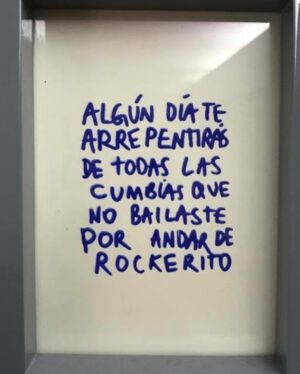 ALGÚN DÍA TE
ARREPENTIRÁS
DE TODAS LAS
CUMBIAS QUE
NO BAILASTE
POR ANDAR DE
ROCKERITO